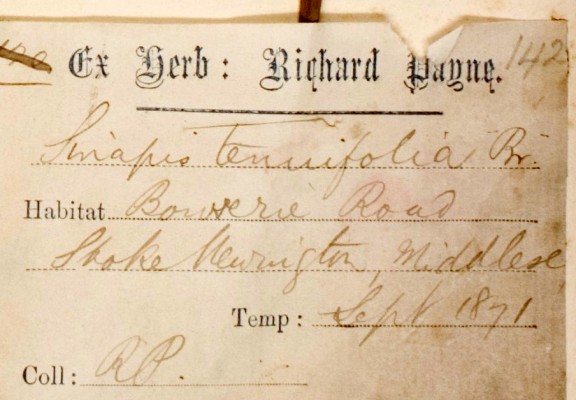 142
Ex Herb: Richard Payne.
Sinapis tenuifolia Br.
Habitat Bouverie Road
Stoke Newington, Middlese
Temp: Sept 1871
Coll: RP.